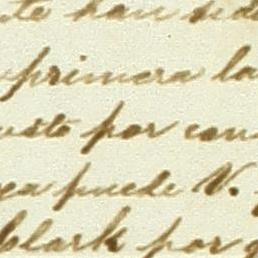 te han sido
primera la
usto por con
ya puede V.
Clark por